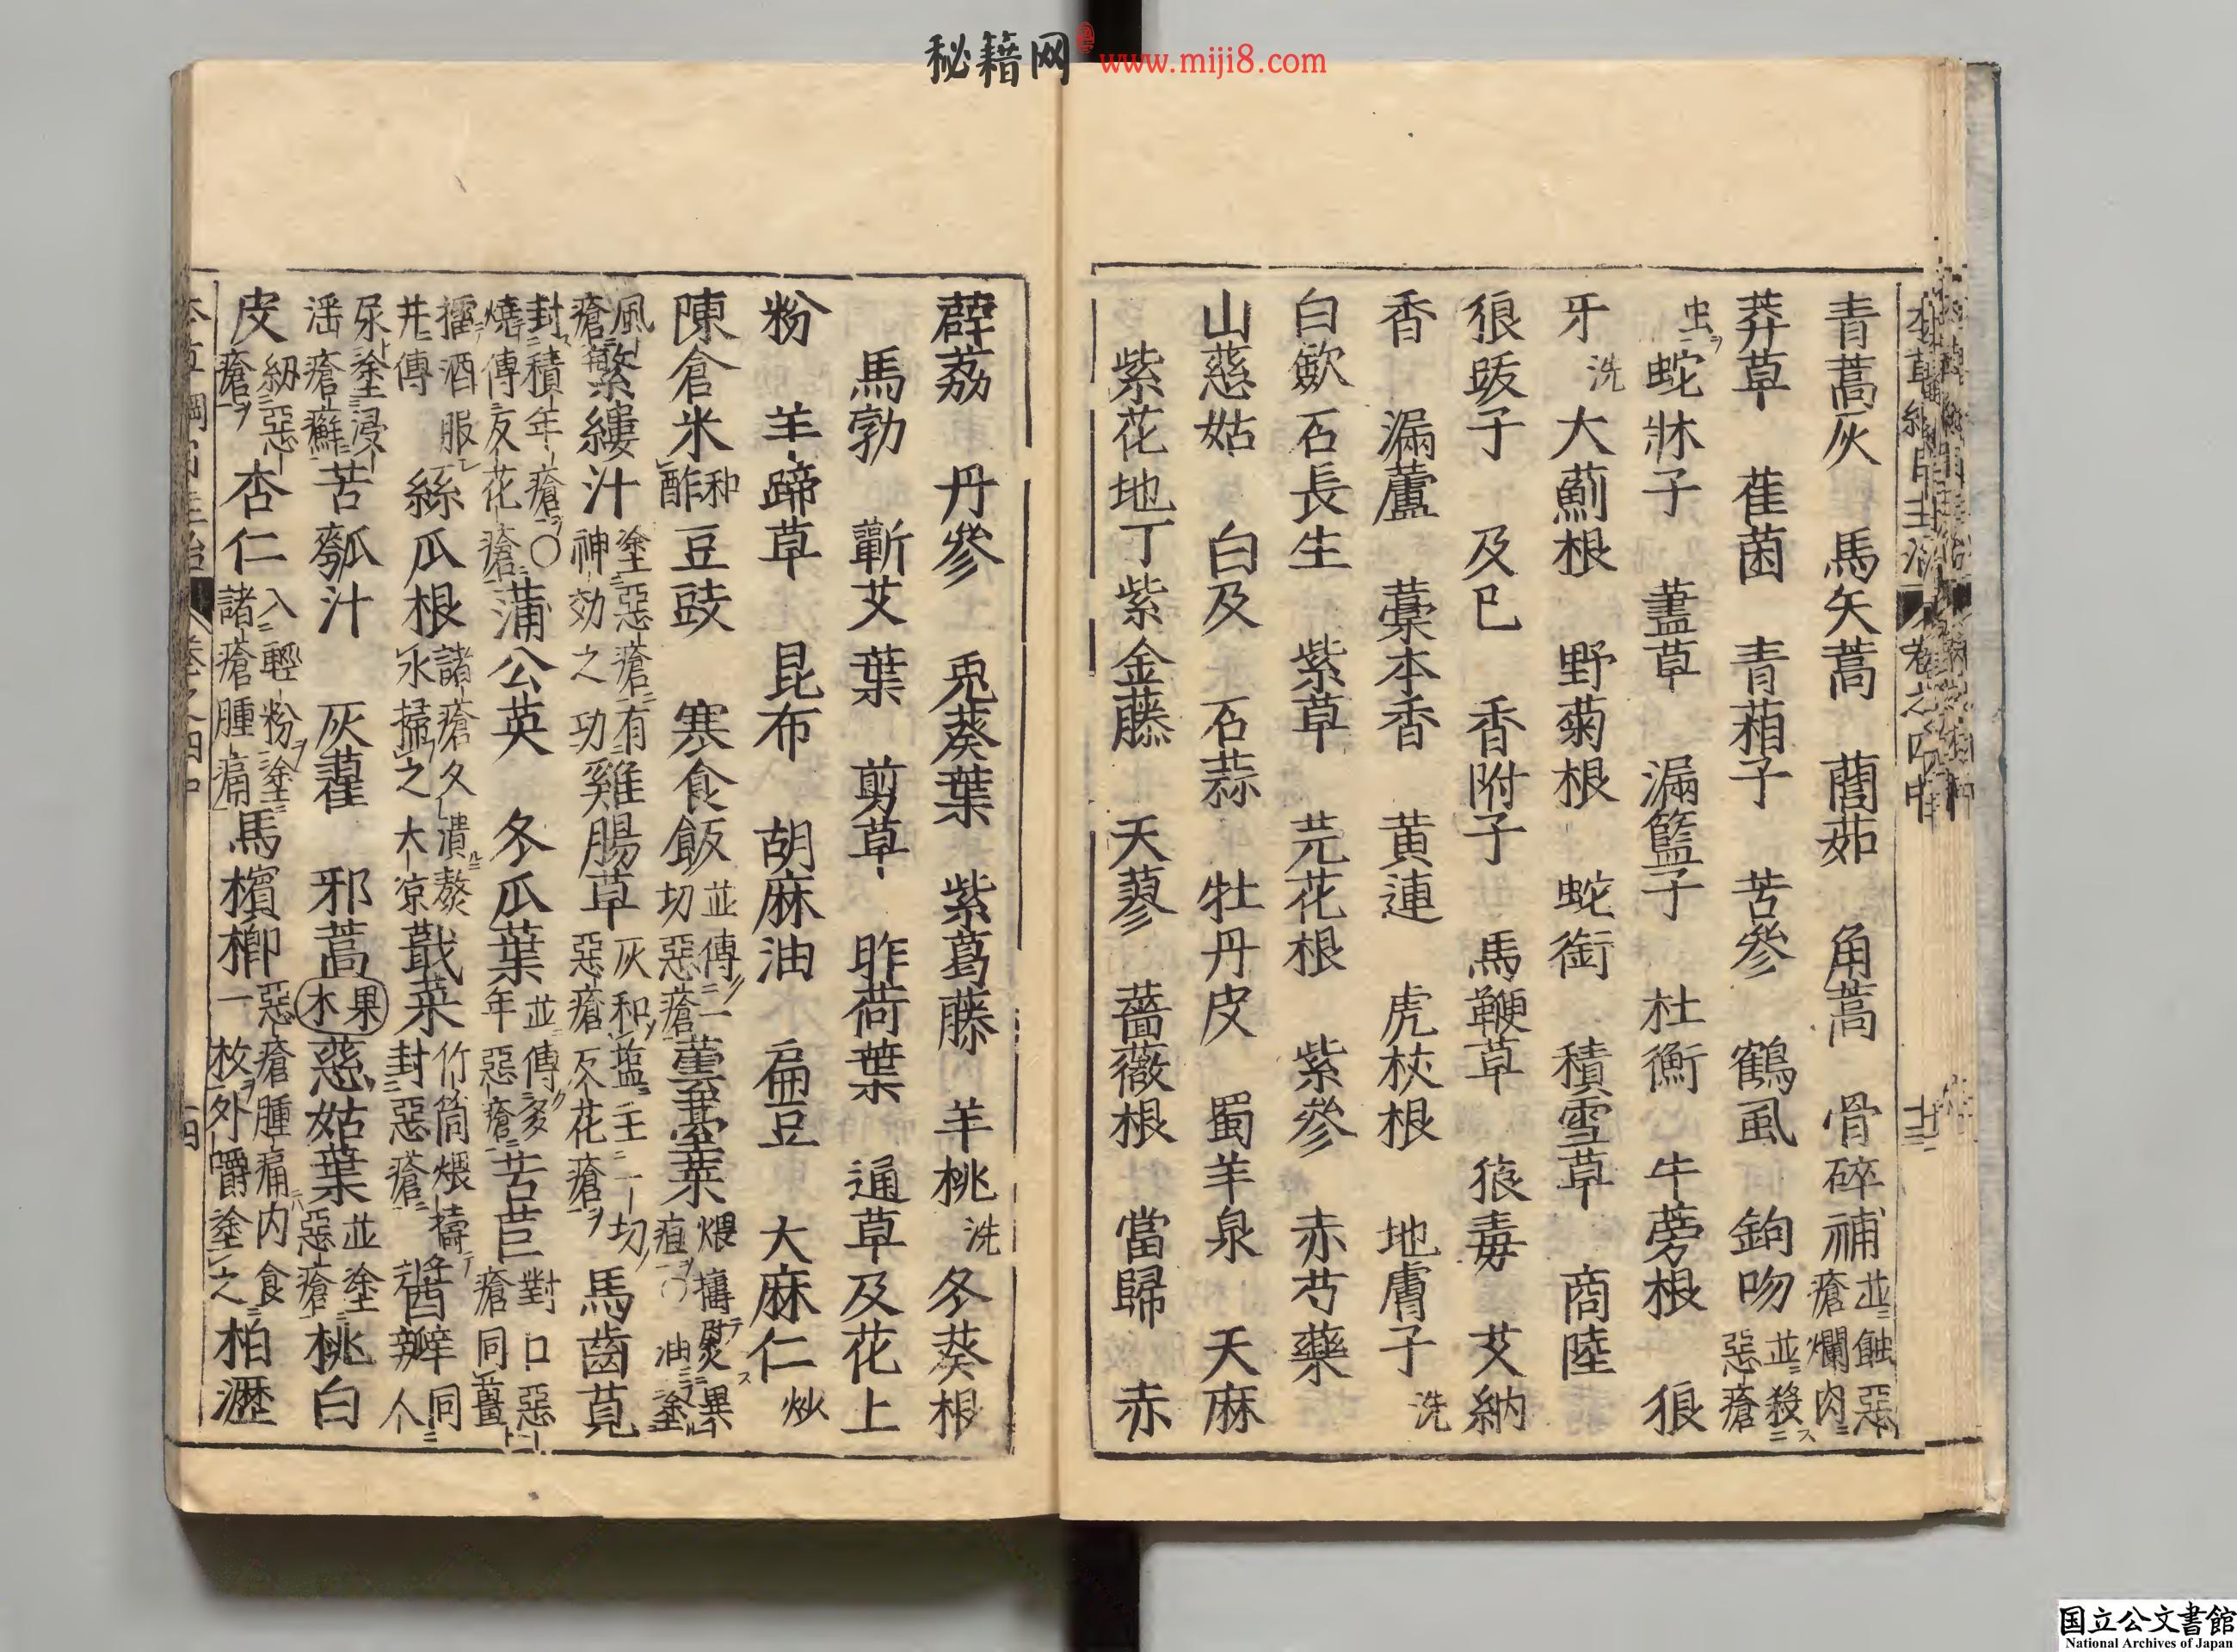 秘籍网 www.miji8.com
青蒿灰 馬矢蒿 藘茹 角蒿 骨碎補 並蝕惡瘡爛肉
莽草 雚菌 青葙子 苦參 鶴虱 鉤吻 並殺惡瘡
虫 蛇牀子 藎草 漏籃子 杜衡 牛蒡根 狼
牙 洗 大薊根 野菊根 蛇銜 積雪草 商陸
狼跋子 及已 香附子 馬鞭草 狼毒 艾納
香 漏蘆 藁本香 黄連 虎杖根 地膚子 洗
白歛 石長生 紫草 芫花根 紫參 赤芍藥
山慈姑 白及 石蒜 牡丹皮 蜀羊泉 天麻
紫花地丁 紫金藤 天蓼 薔薇根 當歸 赤
薜荔 丹參 兎葵葉 紫葛藤 羊桃 洗 冬葵根
馬勃 蘄艾葉 剪草 昨荷葉 通草及花上
粉 羊蹄草 昆布 胡麻油 扁豆 大麻仁 炒
陳倉米 和酢 豆豉 寒食飯 並傅一切惡瘡 堇菜
風瘡 蘩縷汁 塗惡瘡有神効之功 雞腸草 灰和塩主一切惡瘡反花瘡 馬齒莧
封積年瘡○燒傅反花瘡 蒲公英 冬瓜葉 並傅多年惡瘡 苦苣 對口惡瘡同薑
擂酒服并傅 絲瓜根 諸瘡久潰熬水掃之大凉 蕺菜 竹筒煨擣封惡瘡 醬瓣 同人
尿塗浸淫瘡癬 苦瓠汁 灰藋 邪蒿 果木 慈姑葉 並塗惡瘡 桃白
皮 紉惡瘡 杏仁 入輕粉塗諸瘡腫痛 馬檳榔 惡瘡腫痛内食一枚外嚼塗之 柏瀝
国立公文書館
National Archives of Japan